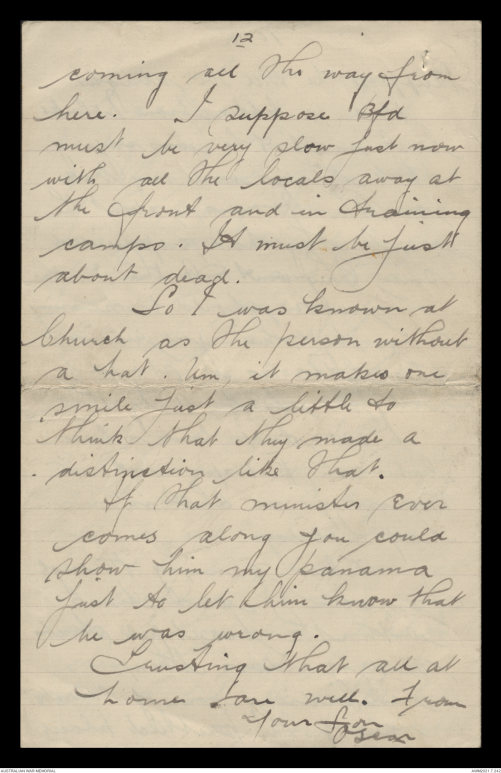 12
coming all the way from
here. I suppose Bfd
must be very slow just now
with all the locals away at
the front and in training
camps. It must be just
about dead.
So I was known at
Church as the person without
a hat. Um, it makes one
smile just a little to
think that they made a
distinction like that.
If that minister ever
comes along you could
show him my panama
just to let him know that
he was wrong.
Trusting that all at
home are well. From
Your Son
Oscar
AUSTRALIAN WAR MEMORIAL